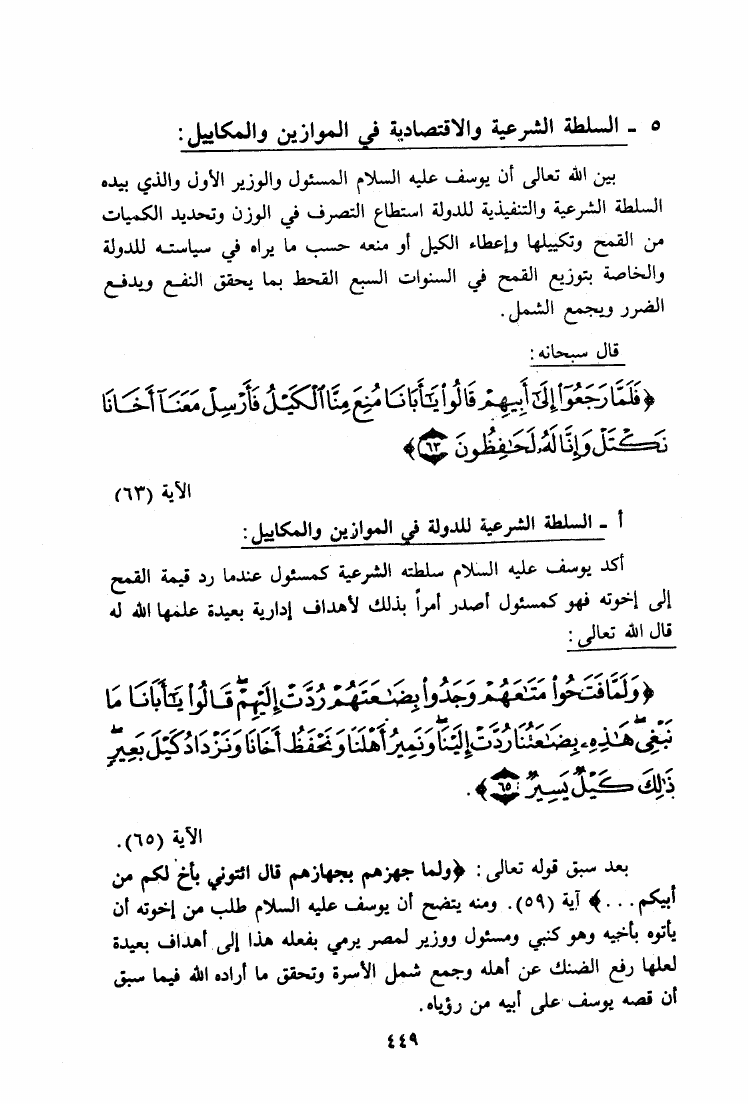 ٥ - السلطة الشرعية والاقتصادية في الموازين والمكاييل :
بين الله تعالى أن يوسف عليه السلام المسئول والوزير الأول والذي بيده
السلطة الشرعية والتنفيذية للدولة استطاع التصرف في الوزن وتحديد الكميات
من القمح وتكييلها وإعطاء الكيل أو منعه حسب ما يراه في سياسته للدولة
والخاصة بتوزيع القمح في السنوات السبع القحط بما يحقق النفع ويدفع
الضرر ويجمع الشمل.
قال سبحانه :
﴿فَلَمَّا رَجَعُوٓا۟ إِلَىٰٓ أَبِيهِمْ قَالُوا۟ يَٰٓأَبَانَا مُنِعَ مِنَّا ٱلْكَيْلُ فَأَرْسِلْ مَعَنَآ أَخَانَا
نَكْتَلْ وَإِنَّا لَهُۥ لَحَٰفِظُونَ ٦٣﴾
الآية (٦٣)
أ - السلطة الشرعية للدولة في الموازين والمكاييل :
أكد يوسف عليه السلام سلطته الشرعية كمسئول عندما رد قيمة القمح
إلى إخوته فهو كمسئول أصدر أمراً بذلك لأهداف إدارية بعيدة علمها الله له
قال الله تعالى :
﴿وَلَمَّا فَتَحُوا۟ مَتَٰعَهُمْ وَجَدُوا۟ بِضَٰعَتَهُمْ رُدَّتْ إِلَيْهِمْ ۖ قَالُوا۟ يَٰٓأَبَانَا مَا
نَبْغِى ۖ هَٰذِهِۦ بِضَٰعَتُنَا رُدَّتْ إِلَيْنَا ۖ وَنَمِيرُ أَهْلَنَا وَنَحْفَظُ أَخَانَا وَنَزْدَادُ كَيْلَ بَعِيرٍ ۖ
ذَٰلِكَ كَيْلٌ يَسِيرٌ ٦٥﴾.
الآية (٦٥).
بعد سبق قوله تعالى : ﴿ولما جهزهم بجهازهم قال ائتوني بأخ لكم من
أبيكم . . .﴾ آية (٥٩). ومنه يتضح أن يوسف عليه السلام طلب من إخوته أن
يأتوه بأخيه وهو كنبي ومسئول ووزير لمصر يرمي بفعله هذا إلى أهداف بعيدة
لعلها رفع الضنك عن أهله وجمع شمل الأسرة وتحقق ما أراده الله فيما سبق
أن قصه يوسف على أبيه من رؤياه.
٤٤٩